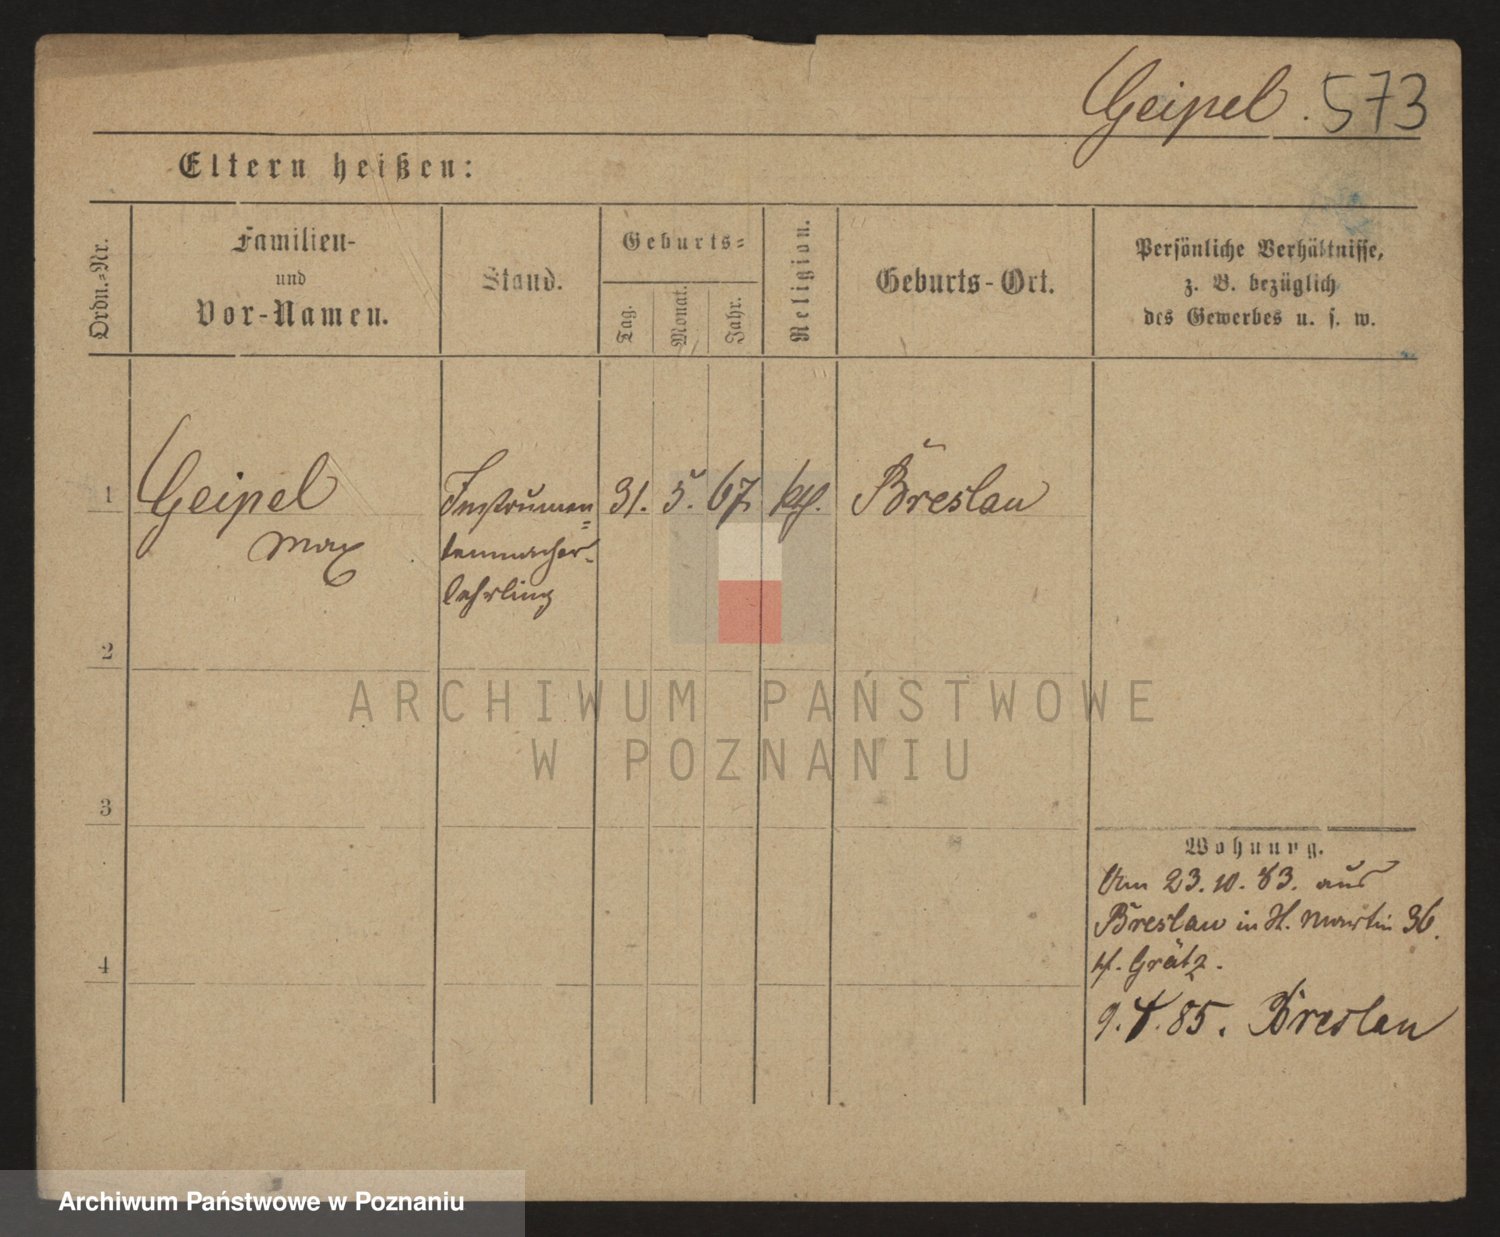 Geipel. 573
Eltern heißen:
Ordn.-Nr.
Familien-
und
Vor-Namen.
Stand.
Geburts-
Tag.
Monat.
Jahr.
Religion.
Geburts-Ort.
Persönliche Verhältnisse,
z. B. bezüglich
des Gewerbes u. s. w.
1
Geipel
Max
Instrumen=
tenmacher-
lehrling
31. 5. 67 kth. Breslau
2
3
4
Wohnung.
Am 23.10.83. aus
Breslau in St. Martin 36.
bei Grätz.
9.4.85. Breslau
ARCHIWUM PAŃSTWOWE
W POZNANIU
Archiwum Państwowe w Poznaniu